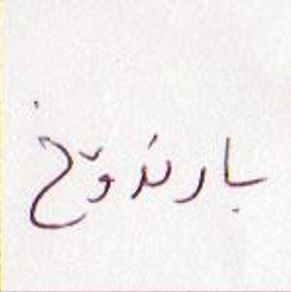 بارندۆخ